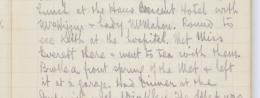 Lunch at the Hans Crescent Hotel with
McMagin & Lady McMahon. Round to
see Keith at the hospital. Met Miss
Everett there & went to tea with them.
Broke a front spring of the Met & left
it at a garage. Had dinner at the